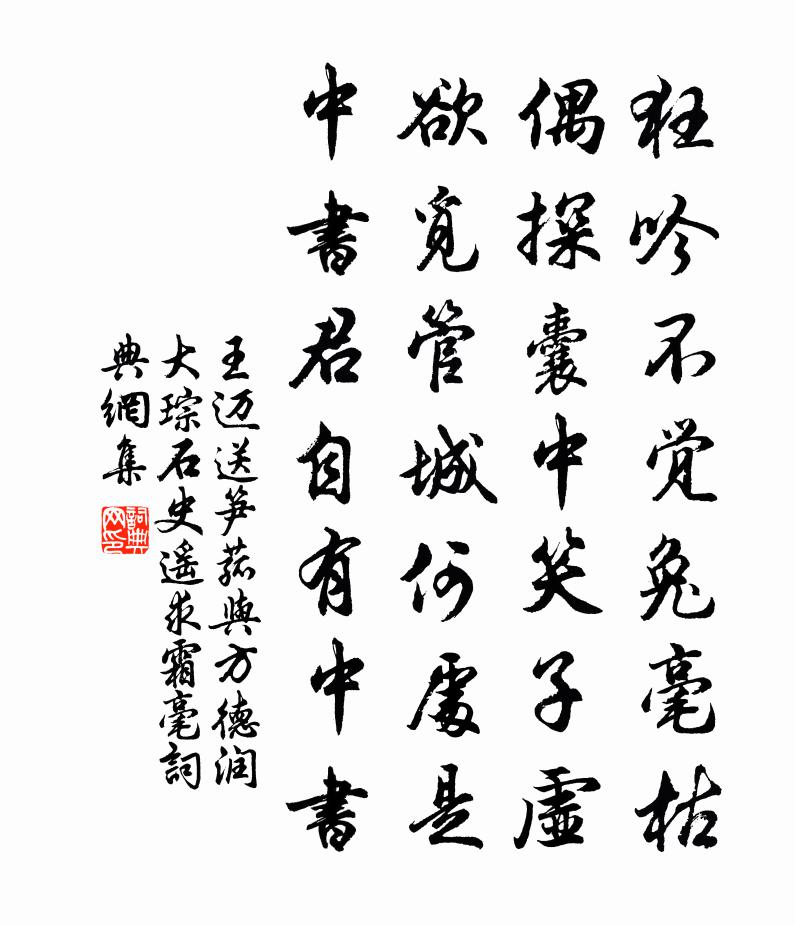 狂吟不觉兔毫枯
偶探囊中笑子虛
欲覓管城何處是
中書君自有中書
王迈送笋菰與方德润
大琮石史遥求霜毫詞
典網集
詞典网印